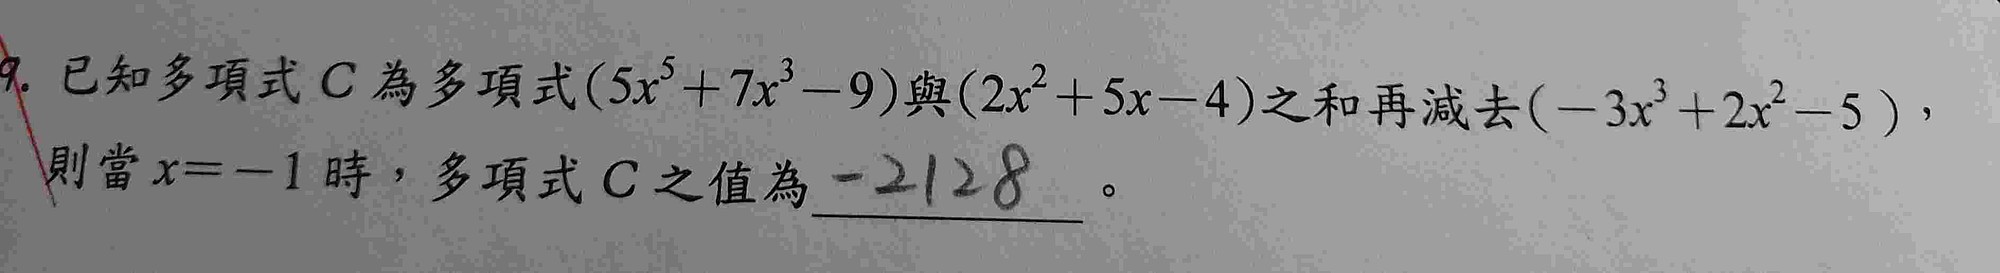 9. 已知多項式 C 為多項式(5x⁵+7x³-9)與(2x²+5x-4)之和再減去(-3x³+2x²-5),
則當 x=-1 時,多項式 C 之值為 -2128 。